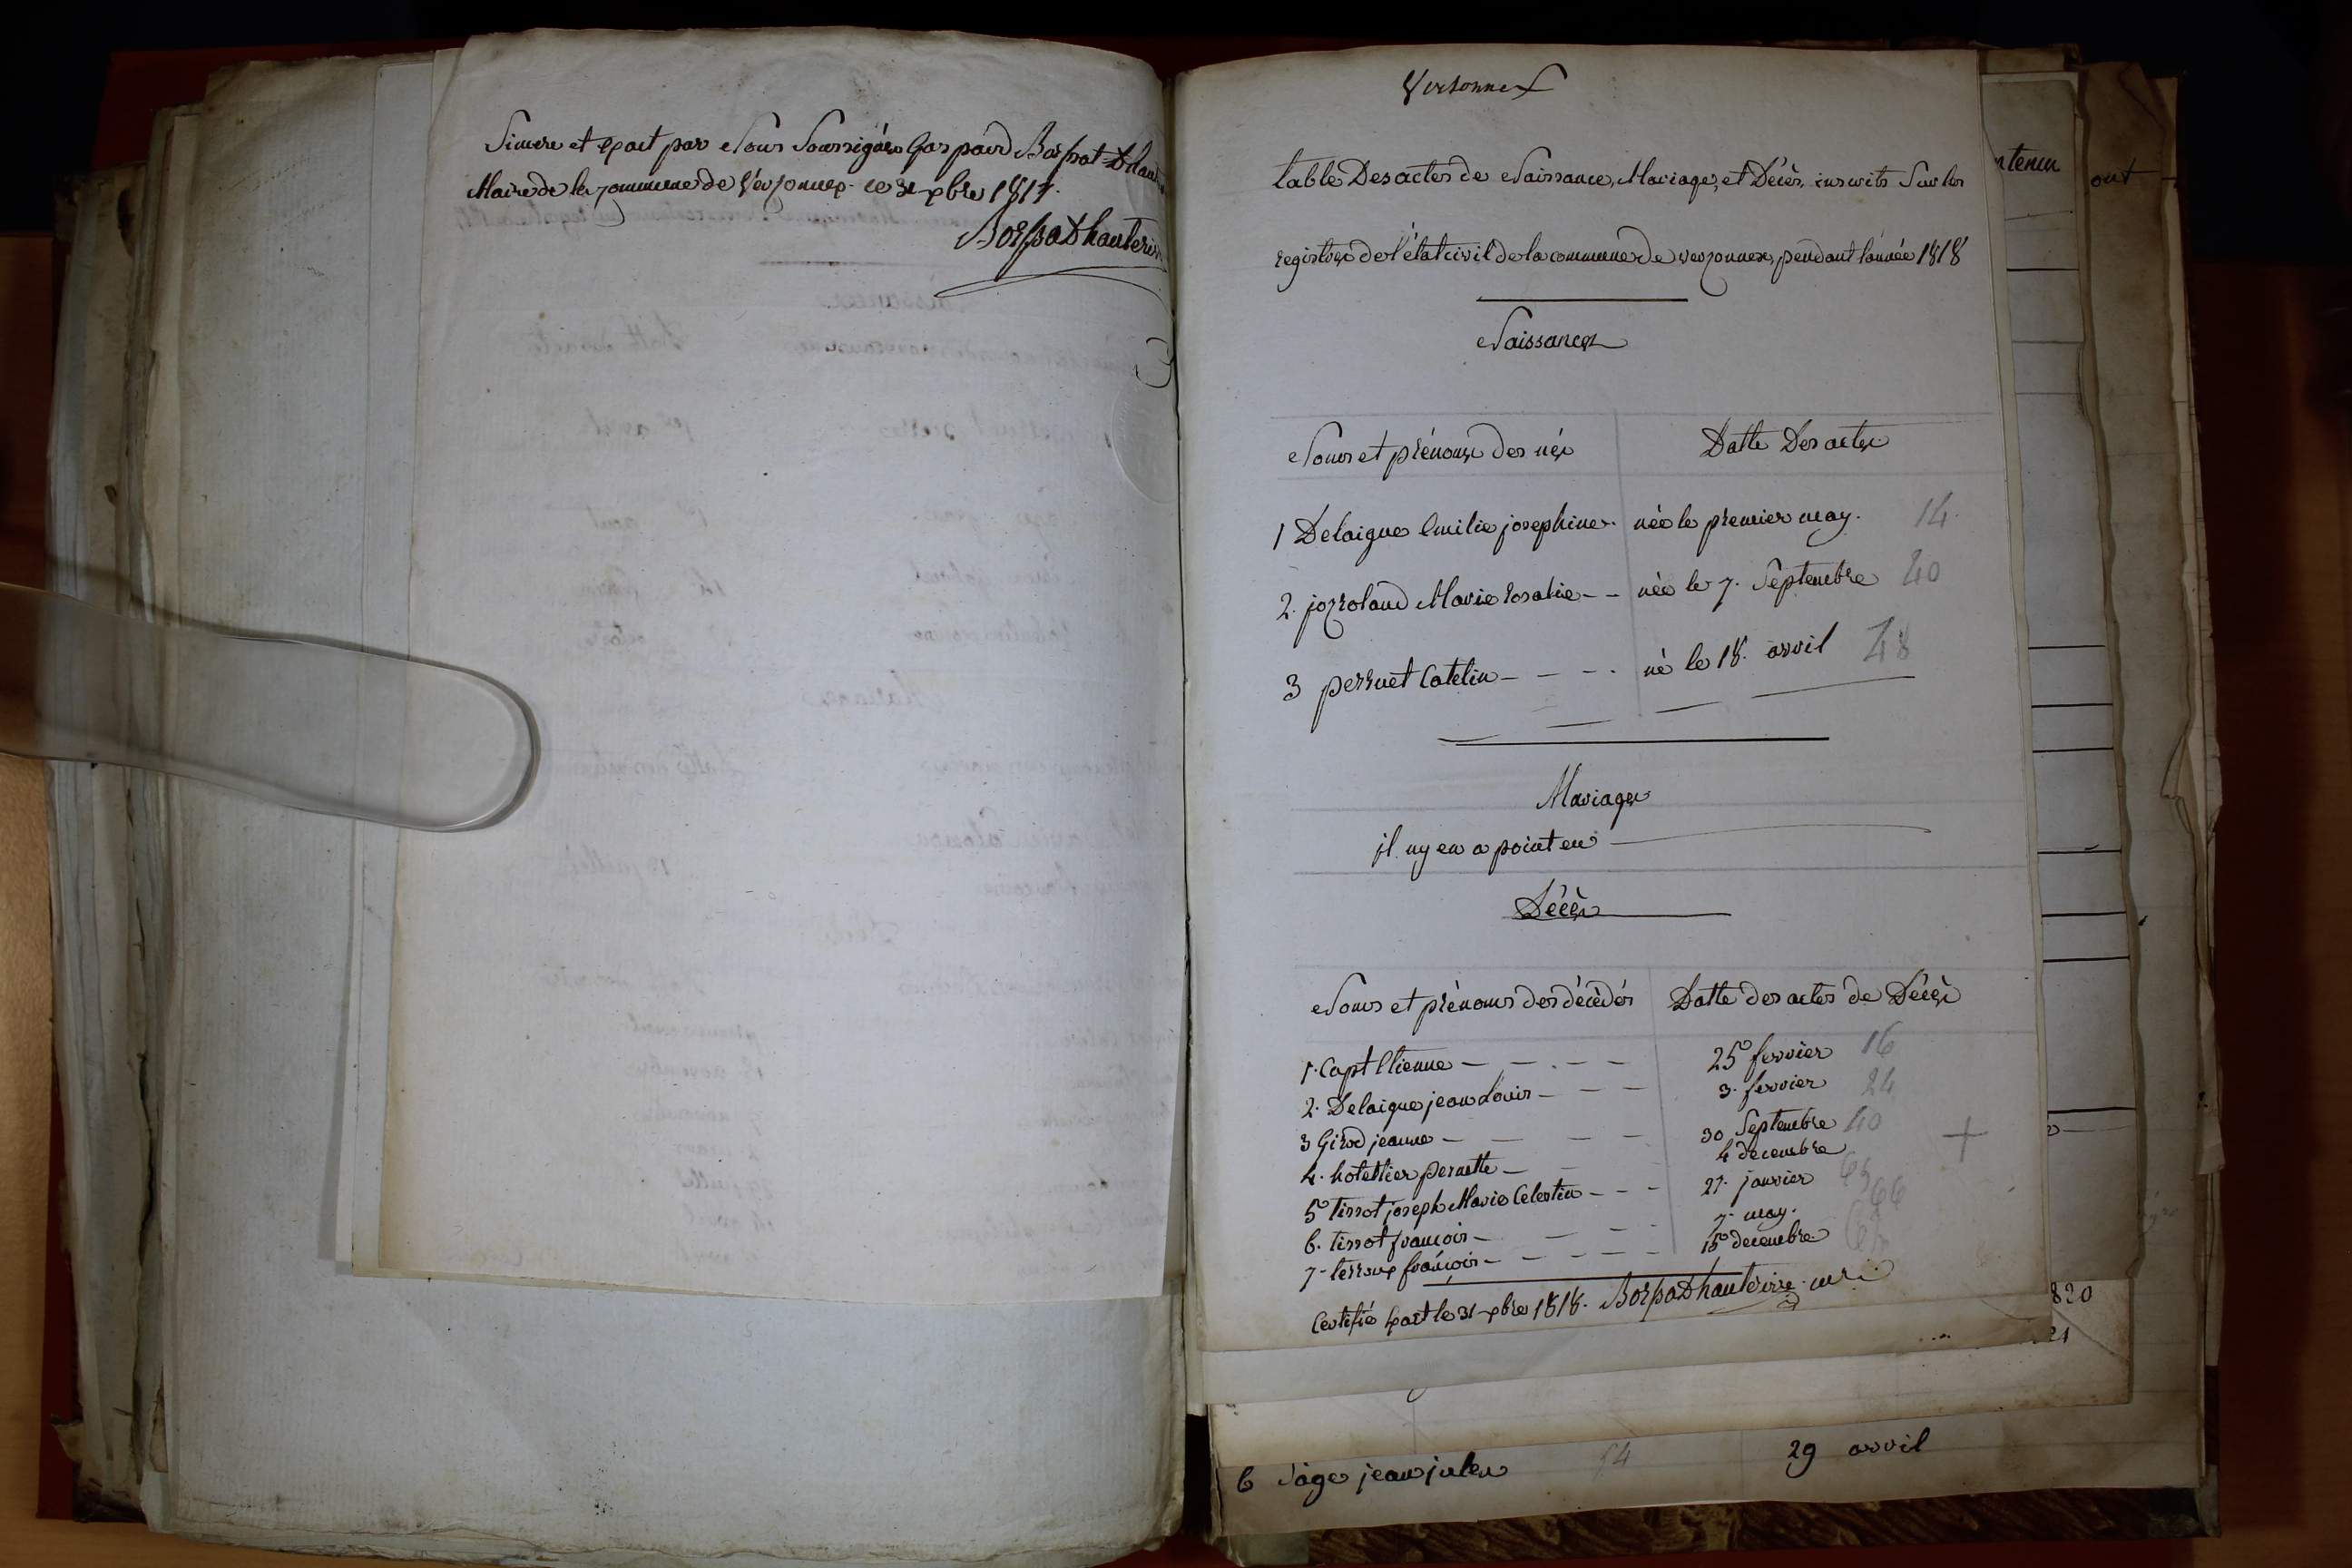 Sincere et exact par Nous Soussignés Gaspard Borssat-D'haut
Maire de la commune de Verzonnex ce 31 xbre 1817.
BorssaDhauterive
Versonnex
table Des actes de Naissance, Mariages, et Décès, inscrits Sur les
registres de l'état civil de la commune de verzonnex, pendant l'année 1818
Naissances
Noms et prénoms des nés
Datte Des actes
1 Delaigue Emilie josephine. née le premier may. 14.
2. jozroland Marie rosalie - - née le 7. Septembre 40
3 perruet Catelin - - - - né le 18. avril 48
Mariages
il ny en a point eu
Décès
Noms et prénoms des décédés
Datte des actes de Décès
1. Capt Etienne - - - - 25 fervier 16
2. Delaigue jean Louis - - - 3. fervier 24
3 Girod jeanne - - - - 30 Septembre 40
4. hotellier pernette - 4 decembre
5 tissot joseph Marie Celestin - - - 27. janvier 65
6. tissot françois - - - 7. may. 66
7 - terroux françois - - - - - 15 decembre
Certifié Exact le 31 xbre 1818. BorssaDhauterive. mre
6 Sage jean julen 54 29 avril
ntenu
ont
820
21